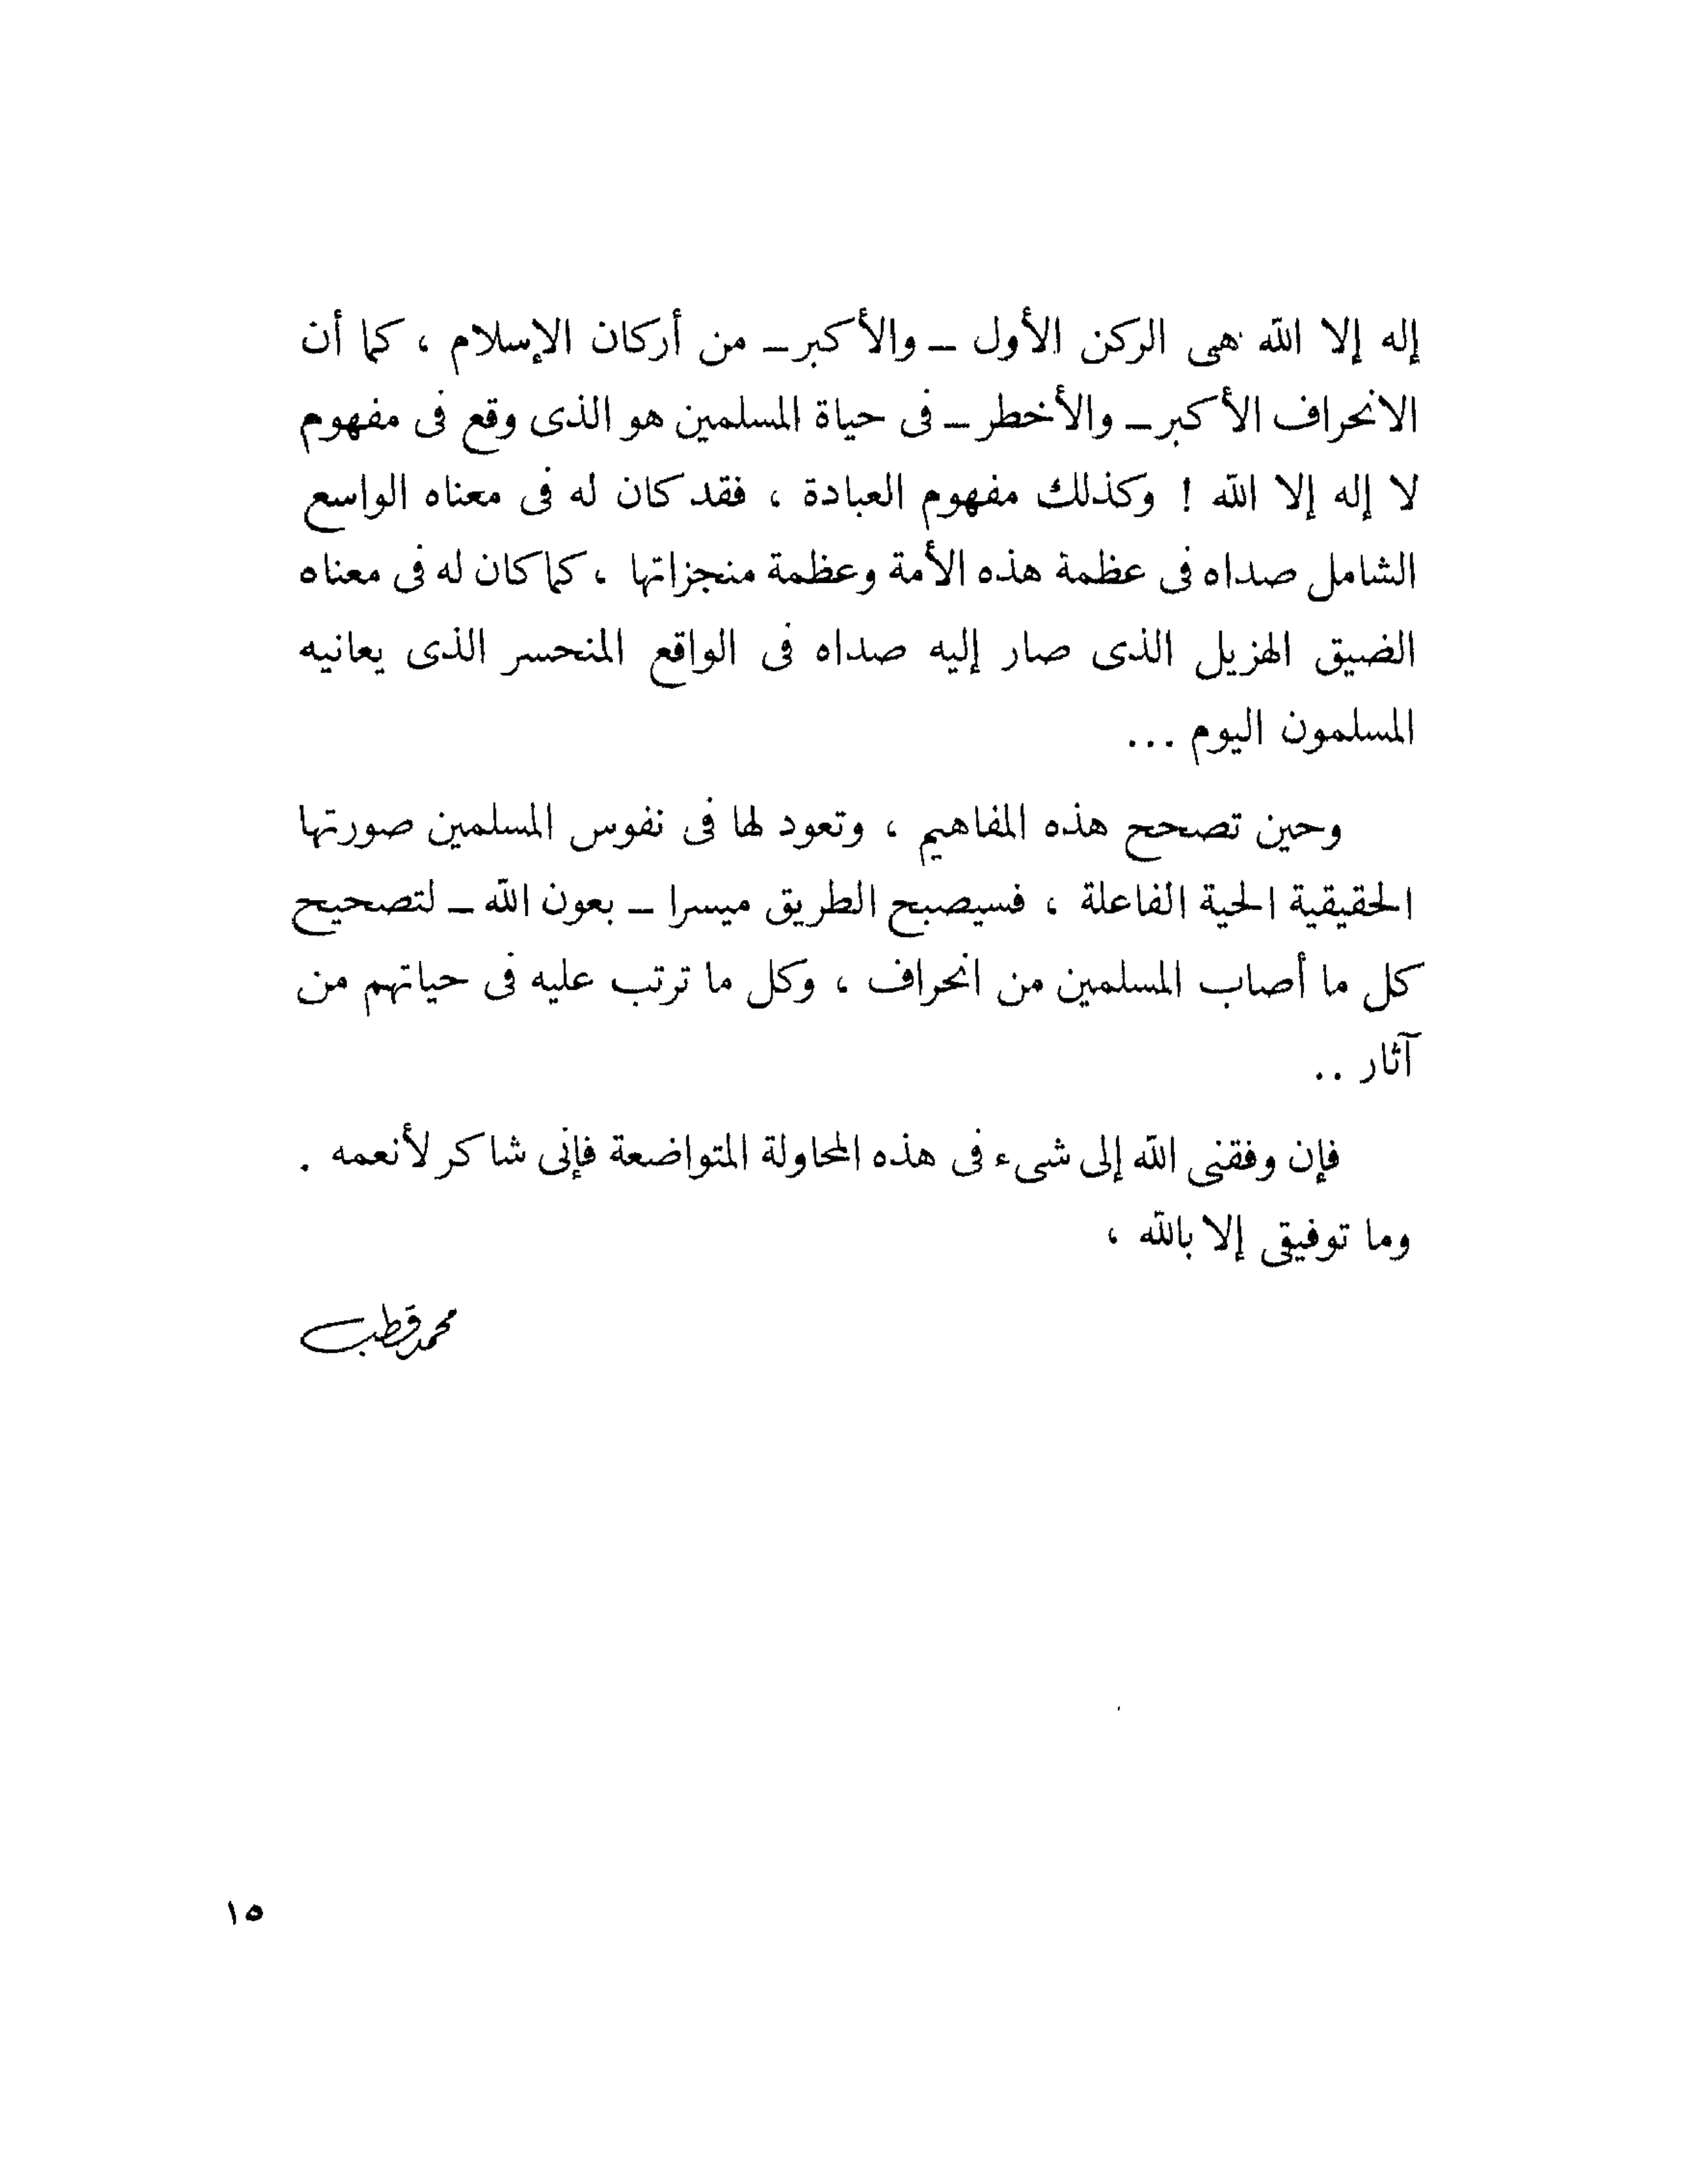 إله إلا الله هى الركن الأول – والأكبر – من أركان الإسلام ، كما أن
الانحراف الأكبر – والأخطر – فى حياة المسلمين هو الذى وقع فى مفهوم
لا إله إلا الله ! وكذلك مفهوم العبادة ، فقد كان له فى معناه الواسع
الشامل صداه فى عظمة هذه الأمة وعظمة منجزاتها ، كما كان له فى معناه
الضيق الهزيل الذى صار إليه صداه فى الواقع المنحسر الذى يعانيه
المسلمون اليوم ...
وحين تصحح هذه المفاهيم ، وتعود لها فى نفوس المسلمين صورتها
الحقيقية الحية الفاعلة ، فسيصبح الطريق ميسرا – بعون الله – لتصحيح
كل ما أصاب المسلمين من انحراف ، وكل ما ترتب عليه فى حياتهم من
آثار ..
فإن وفقنى الله إلى شىء فى هذه المحاولة المتواضعة فإنى شاكر لأنعمه .
وما توفيقى إلا بالله ،
محمد قطب
١٥